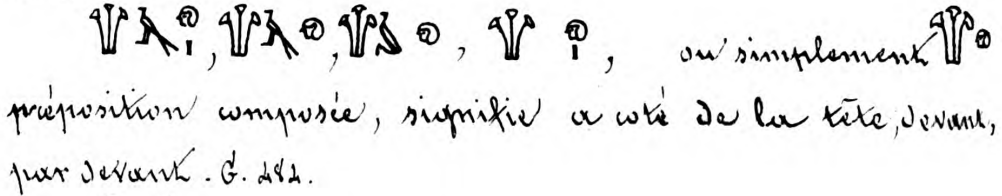 , , , , ou simplement
préposition composée, signifie a coté de la tête, devant,
par devant. G. 484.